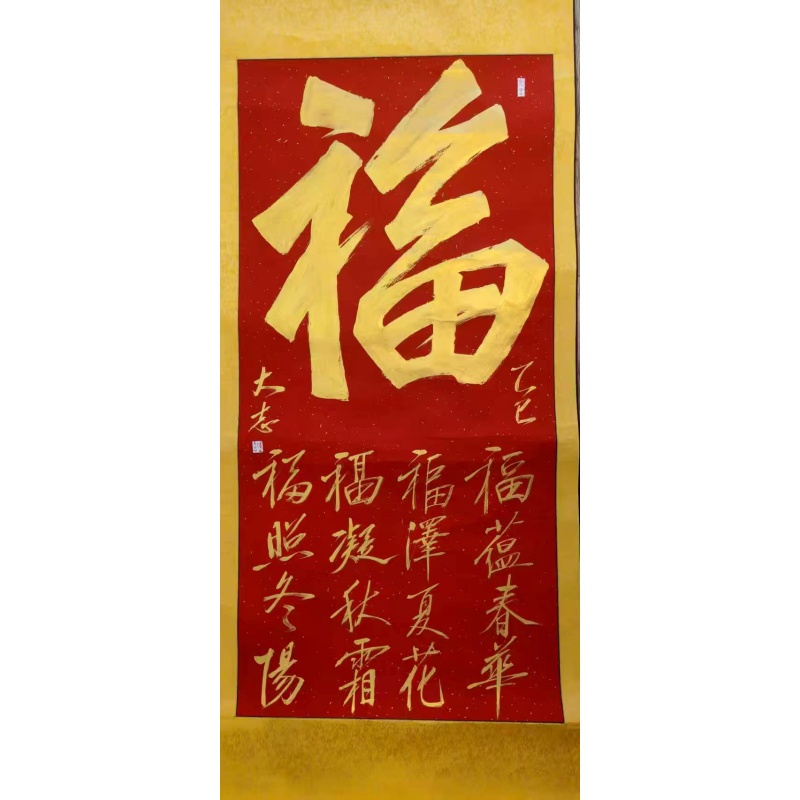 福
乙巳
大志
福蕴春華
福澤夏花
福凝秋霜
福照冬陽